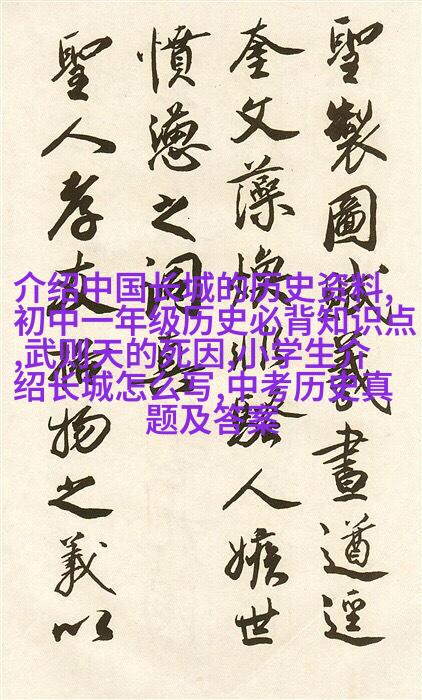 聖製圖義畫遒逕
奎文藻煥非騷人嫉世
憤懣之詞
聖人孝友物之義以
介绍中国长城的历史资料,
初中一年级历史必背知识点
,武则天的死因,小学生介
绍长城怎么写,中考历史真
题及答案